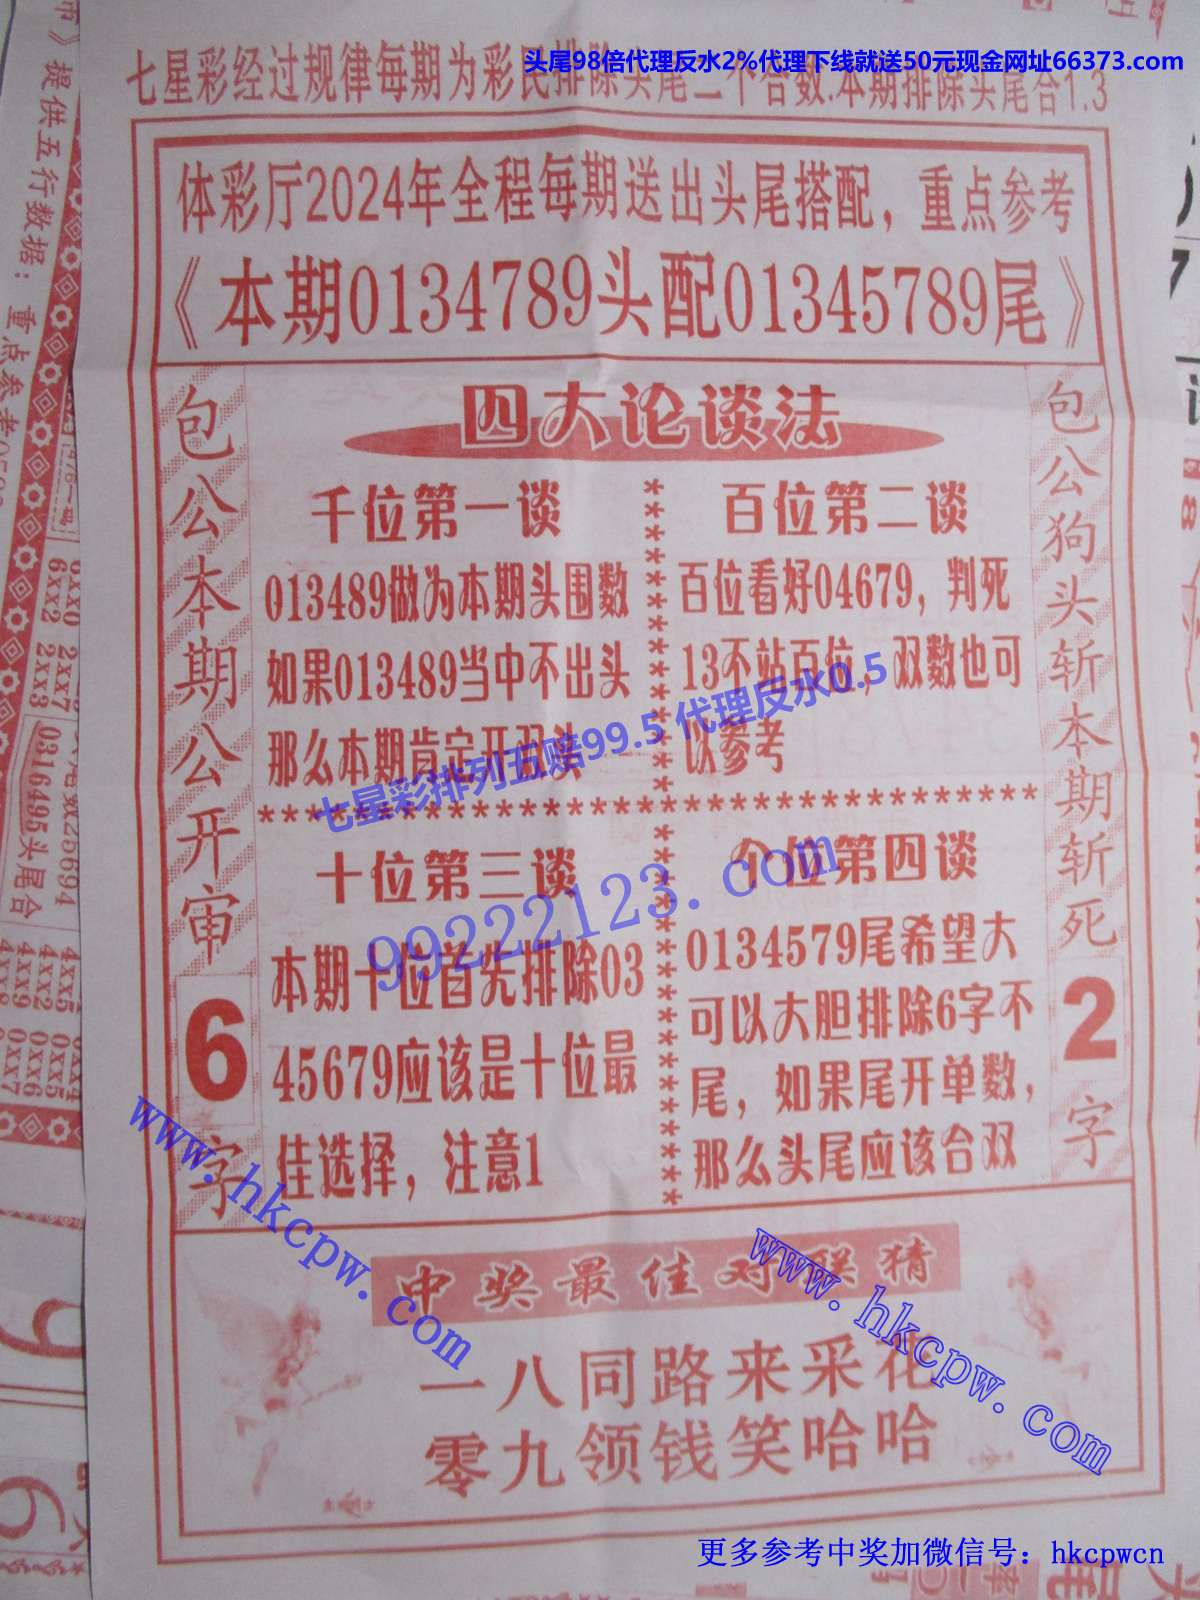 头尾98倍代理反水2%代理下线就送50元现金网址66373.com
七星彩经过规律每期为彩民排除头尾二个合数.本期排除头尾合1.3
体彩厅2024年全程每期送出头尾搭配，重点参考
《本期0134789头配01345789尾》
四大论谈法
包公本期公开审
6
字
千位第一谈
013489做为本期头围数
如果013489当中不出头
那么本期肯定开双读
百位第二谈
百位看好04679，判死
13不站百位，双数也可
以参考
七星彩排列五赔99.5 代理反水0.5
十位第三谈
本期十位首先排除03
45679应该是十位最
佳选择，注意1
个位第四谈
0134579尾希望大
可以大胆排除6字不
尾，如果尾开单数，
那么头尾应该合双
99222123.com
包公狗头斩本期斩死
2
字
www.hkcpw.com
www.hkcpw.com
中奖最佳对联猜
一八同路来采花
零九领钱笑哈哈
更多参考中奖加微信号：hkcpwcn
市》提供五行数据：重点参考
0316495头尾合
6XX2 2XX3
4XX5 0XX4
4XX2 0XX5
4XX9 0XX6
4XX8 0XX7
9
6